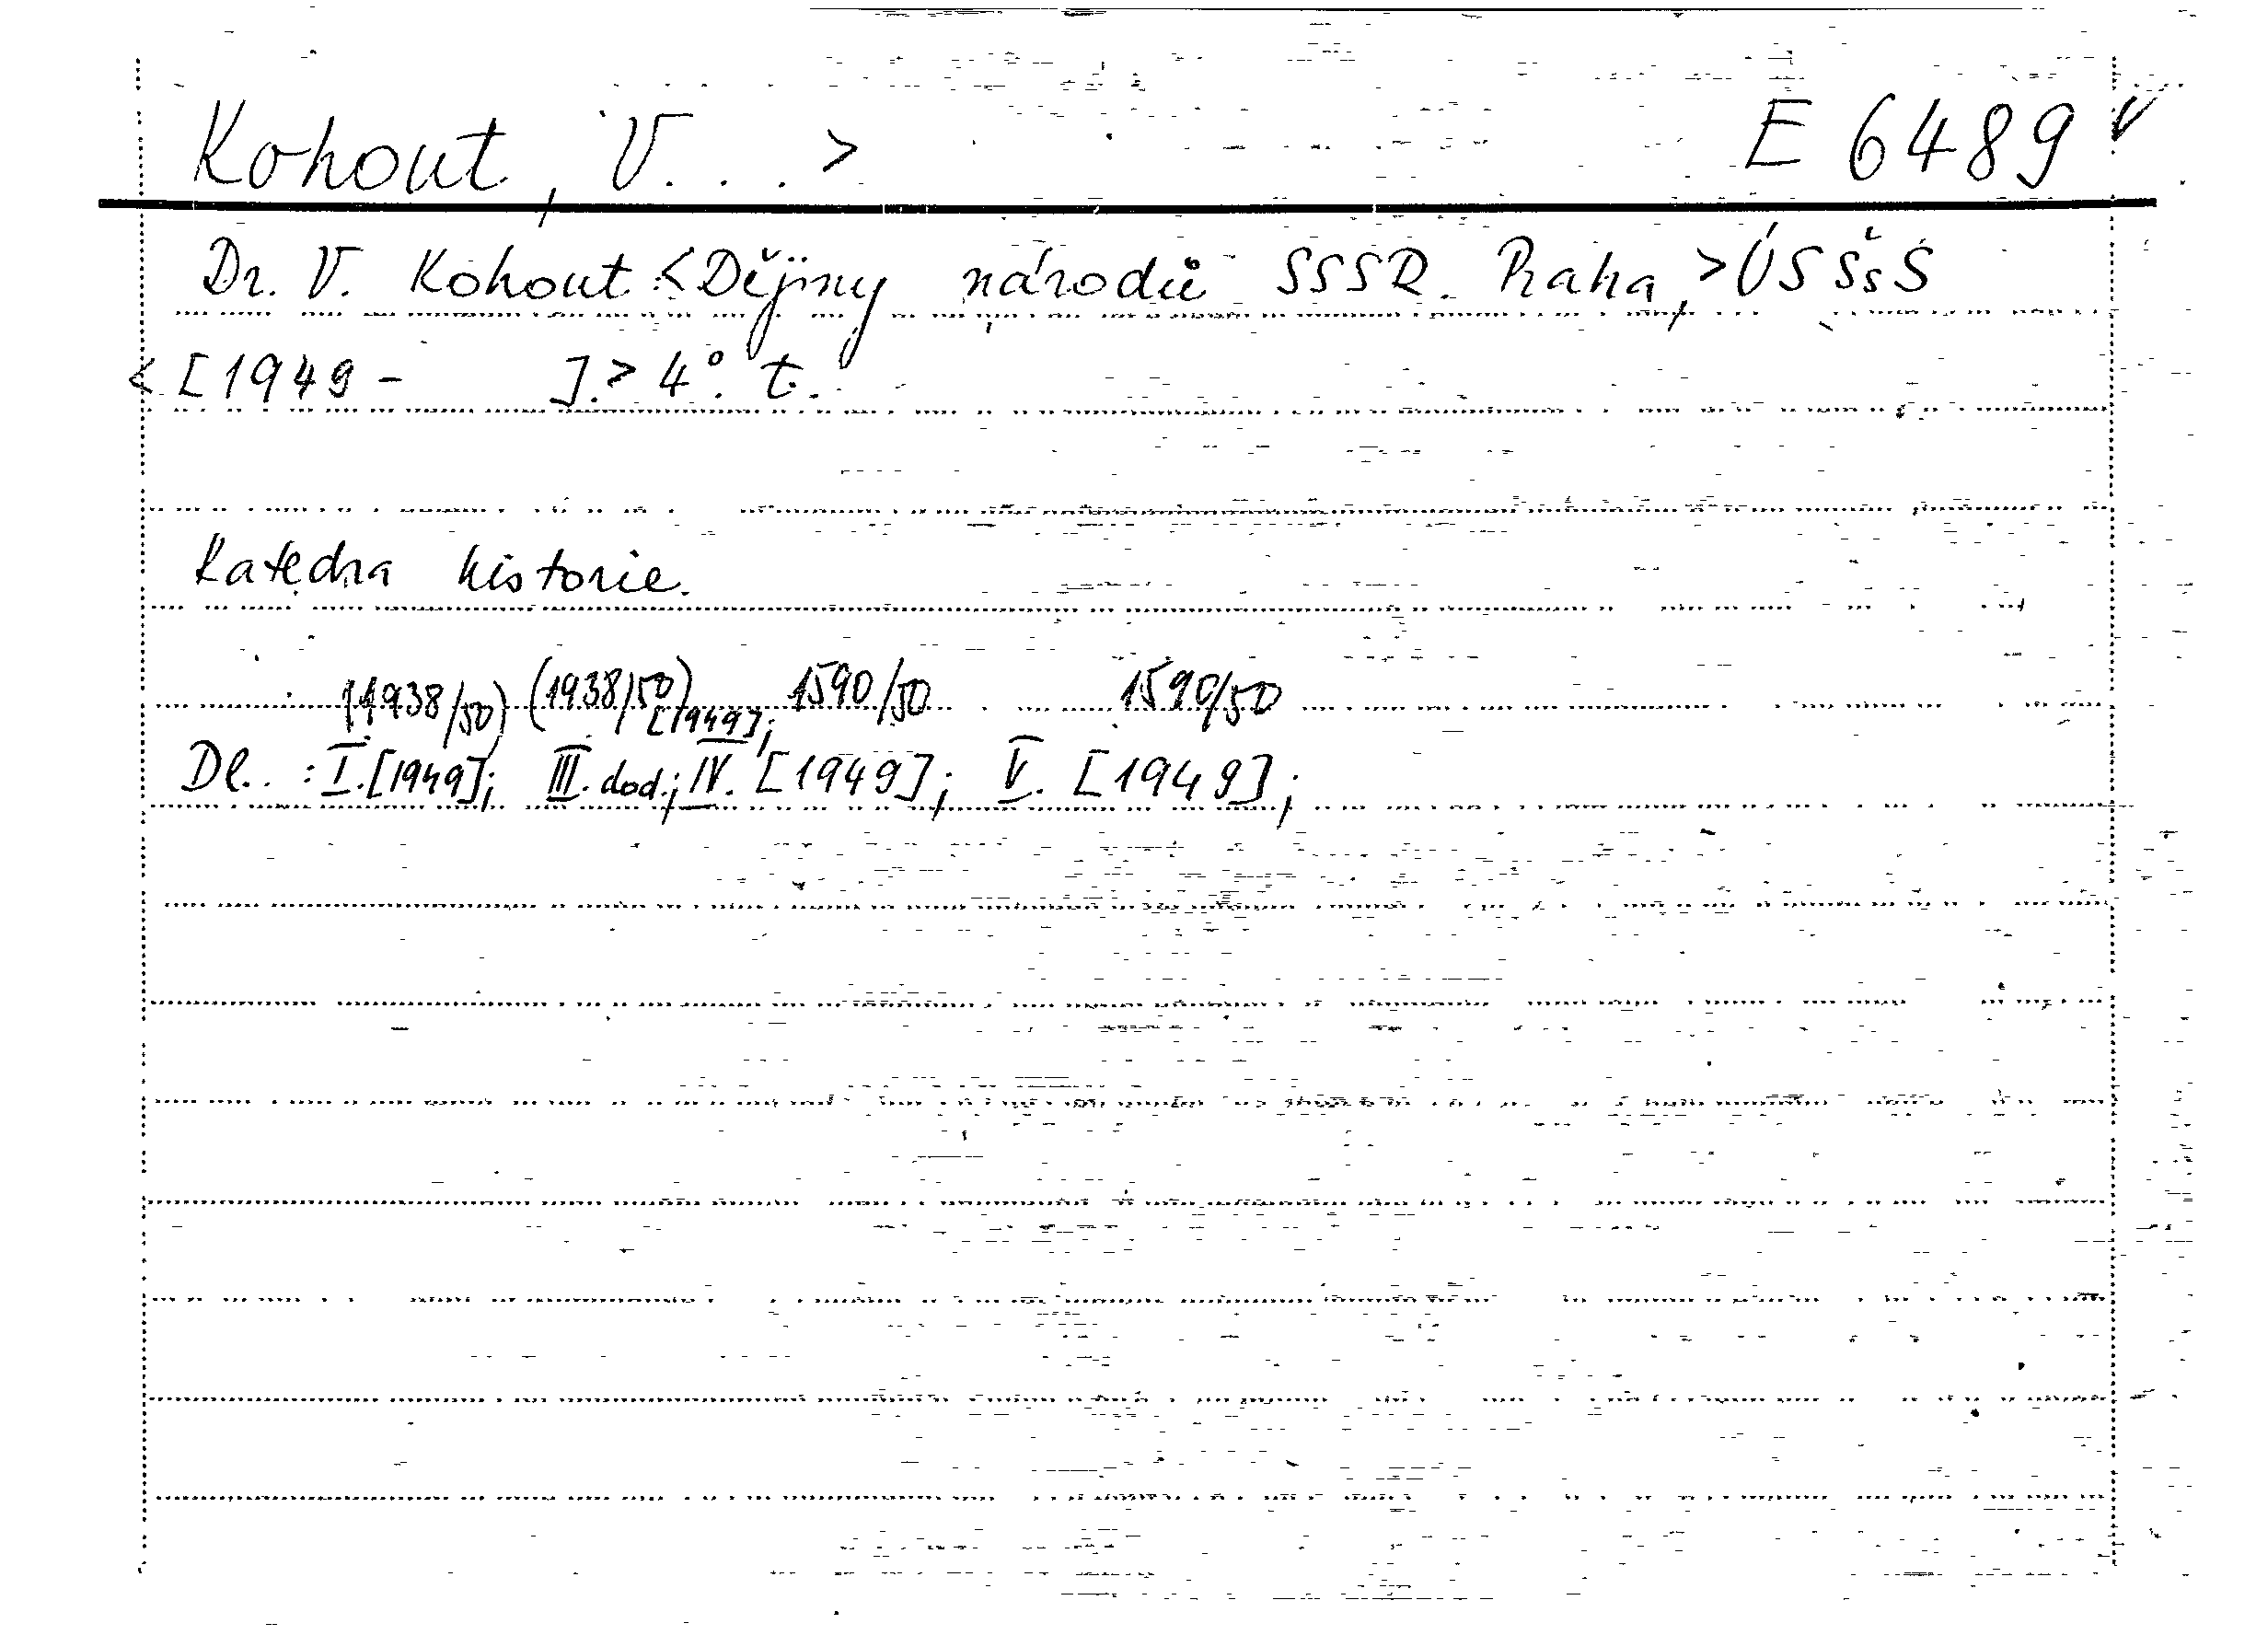 Kohout, V... > E 6489 v
Dr. V. Kohout <Dějiny národů SSSR. Praha, >ÚSŠsS
< [1949 - ].> 4°. t.
Katedra historie.
(1938/50) (1938/50) 1590/50 1590/50
[1949];
Dl. : I. [1949]; III. dod.; IV. [1949]; V. [1949];